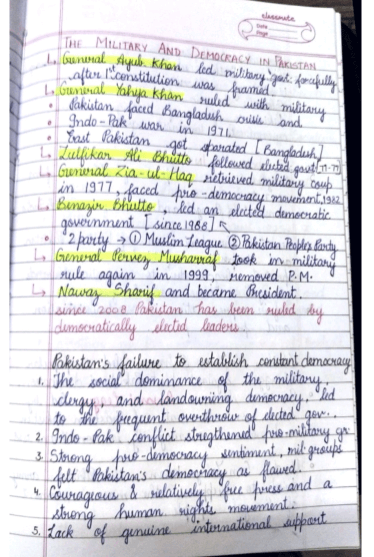 classmate
Date
Page
THE MILITARY AND DEMOCRACY IN PAKISTAN
↳ General Ayub Khan led military govt. forcefully
after 1st constitution was framed
↳ General Yahya Khan ruled with military
• Pakistan faced Bangladesh crisis and
• Indo-Pak war in 1971.
• East Pakistan got sparated [Bangladesh]
↳ Zulfikar Ali Bhutto followed elected govt [71-77]
↳ General Zia-ul-Haq retrieved military coup
in 1977, faced pro-democracy movement, 1982
↳ Benazir Bhutto, led an elected democratic
government [since 1988]
• 2 party → ① Muslim League ② Pakistan People's Party
↳ General Pervez Musharraf took in military
rule again in 1999, removed P.M.
↳ Nawaz Sharif and became President.
since 2008 Pakistan has been ruled by
democratically elected leaders.
Pakistan's failure to establish constant democracy
1. The social dominance of the military,
clergy, and landowning democracy, led
to the frequent overthrow of elected gov..
2. Indo-Pak conflict stregthened pro-military gr.
3. Strong pro-democracy sentiment, mil groups
felt Pakistan's democracy as flawed.
4. Courageous & relatively free press and a
strong human rights movement.
5. Lack of genuine international support